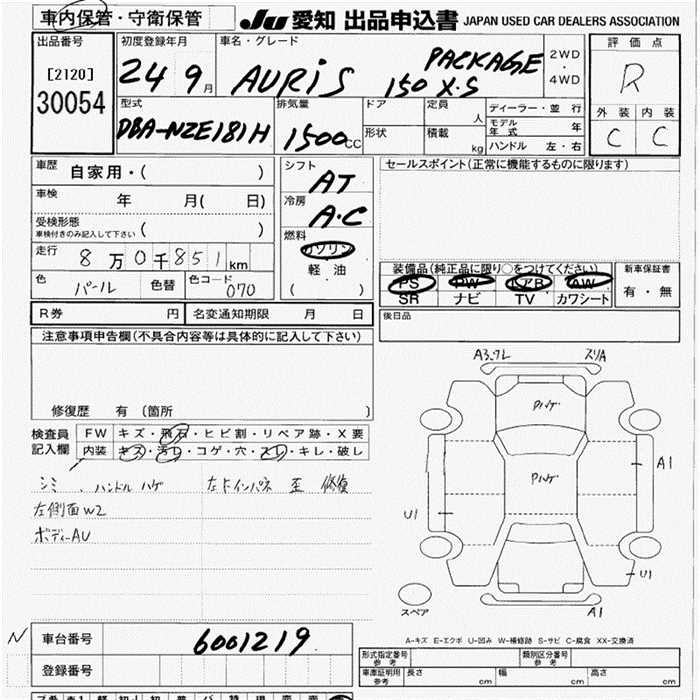 車内保管・守衛保管
JU 愛知 出品申込書 JAPAN USED CAR DEALERS ASSOCIATION
出品番号
[2120]
30054
初度登録年月
24 9月
車名・グレード
AURIS 150 X.S PACKAGE
2WD
・
4WD
評価点
R
外装 内装
C C
型式
DBA-NZE181H
排気量
1500CC
ドア
形状
定員 人
積載 kg
ディーラー・並行
モデル年式 年
ハンドル 左・右
車歴 自家用・( )
車検 年 月( 日)
受検形態
車検付きのみ記入して下さい ( )
走行 8万0千851km
色 パール 色替 色コード 070
シフト
AT
冷房
A.C
燃料
ガソリン
・
軽油
( )
セールスポイント(正常に機能するものに限ります)
装備品(純正品に限り○をつけてください)
PS PW エアB AW
SR ナビ TV カワシート
新車保証書
有・無
R券 円 名変通知期限 月 日
後日品
注意事項申告欄(不具合内容等は具体的に記入して下さい)
修復歴 有 (箇所 )
検査員
記入欄
FW キズ・飛石・ヒビ割・リペア跡・X要
内装 キズ・汚し・コゲ・穴・スレ・キレ・破し
シミ 、ハンドルハゲ 左ドインパネ 歪 修復
左側面W2
ボディーAU
A3.クレ スリA
Pハゲ
Pハゲ
A1
U1
U1
A1
スペア
A-キズ E-エクボ U-凹み W-補修跡 S-サビ C-腐食 XX-交換済
N
車台番号 6001219
登録番号
形式指定番号
参考
類別区分番号
参考
車庫証明用
参考
長さ cm 幅 cm 高さ cm